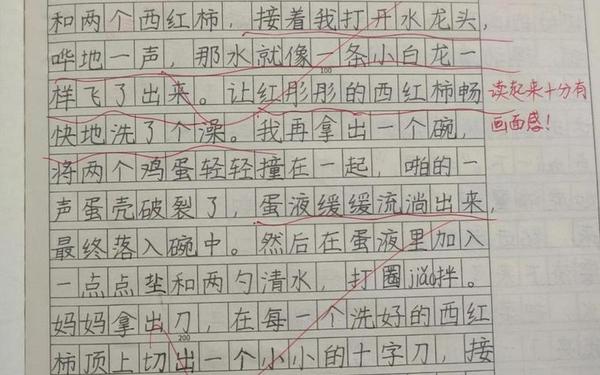 和两个西红柿，接着我打开水龙头，
哗地一声，那水就像一条小白龙一
100
样飞了出来。让红彤彤的西红柿畅
读起来十分有
快地洗了个澡。我再拿出一个碗，
画面感！
将两个鸡蛋轻轻撞在一起，啪的一
声蛋壳破裂了，蛋液缓缓流淌出来，
最终落入碗中。然后在蛋液里加入
一点点盐和两勺清水，打圈jiǎo拌。
妈妈拿出刀，在每一个洗好的西红
200
柿顶上切出一个小小的十字刀，接